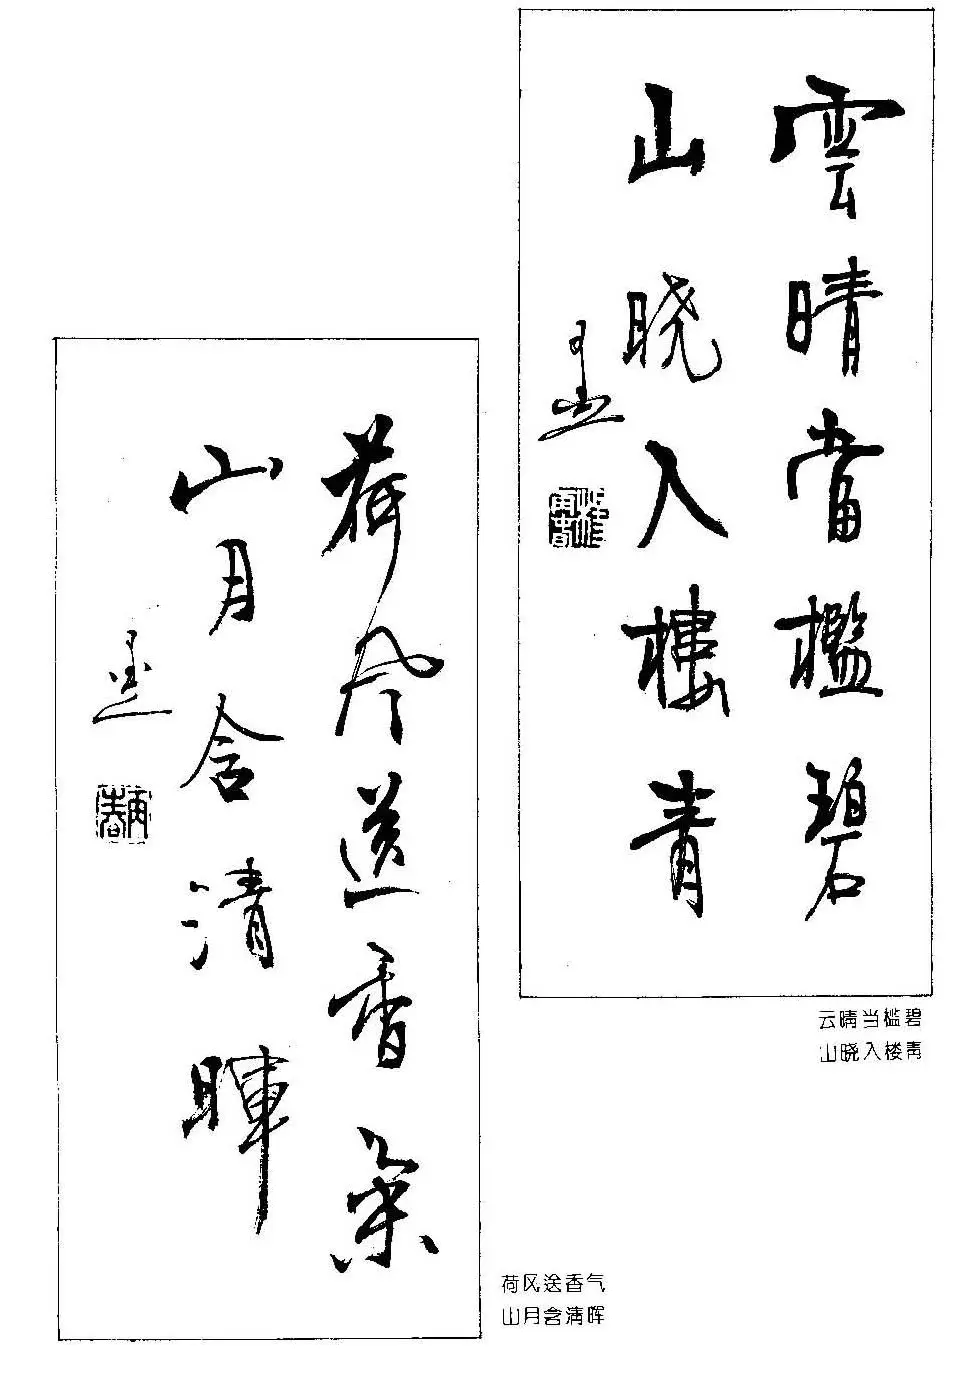 雲晴當檻碧
山晓入樓青
云晴当槛碧
山晓入楼青
荷风送香氣
山月含清暉
荷风送香气
山月含清晖